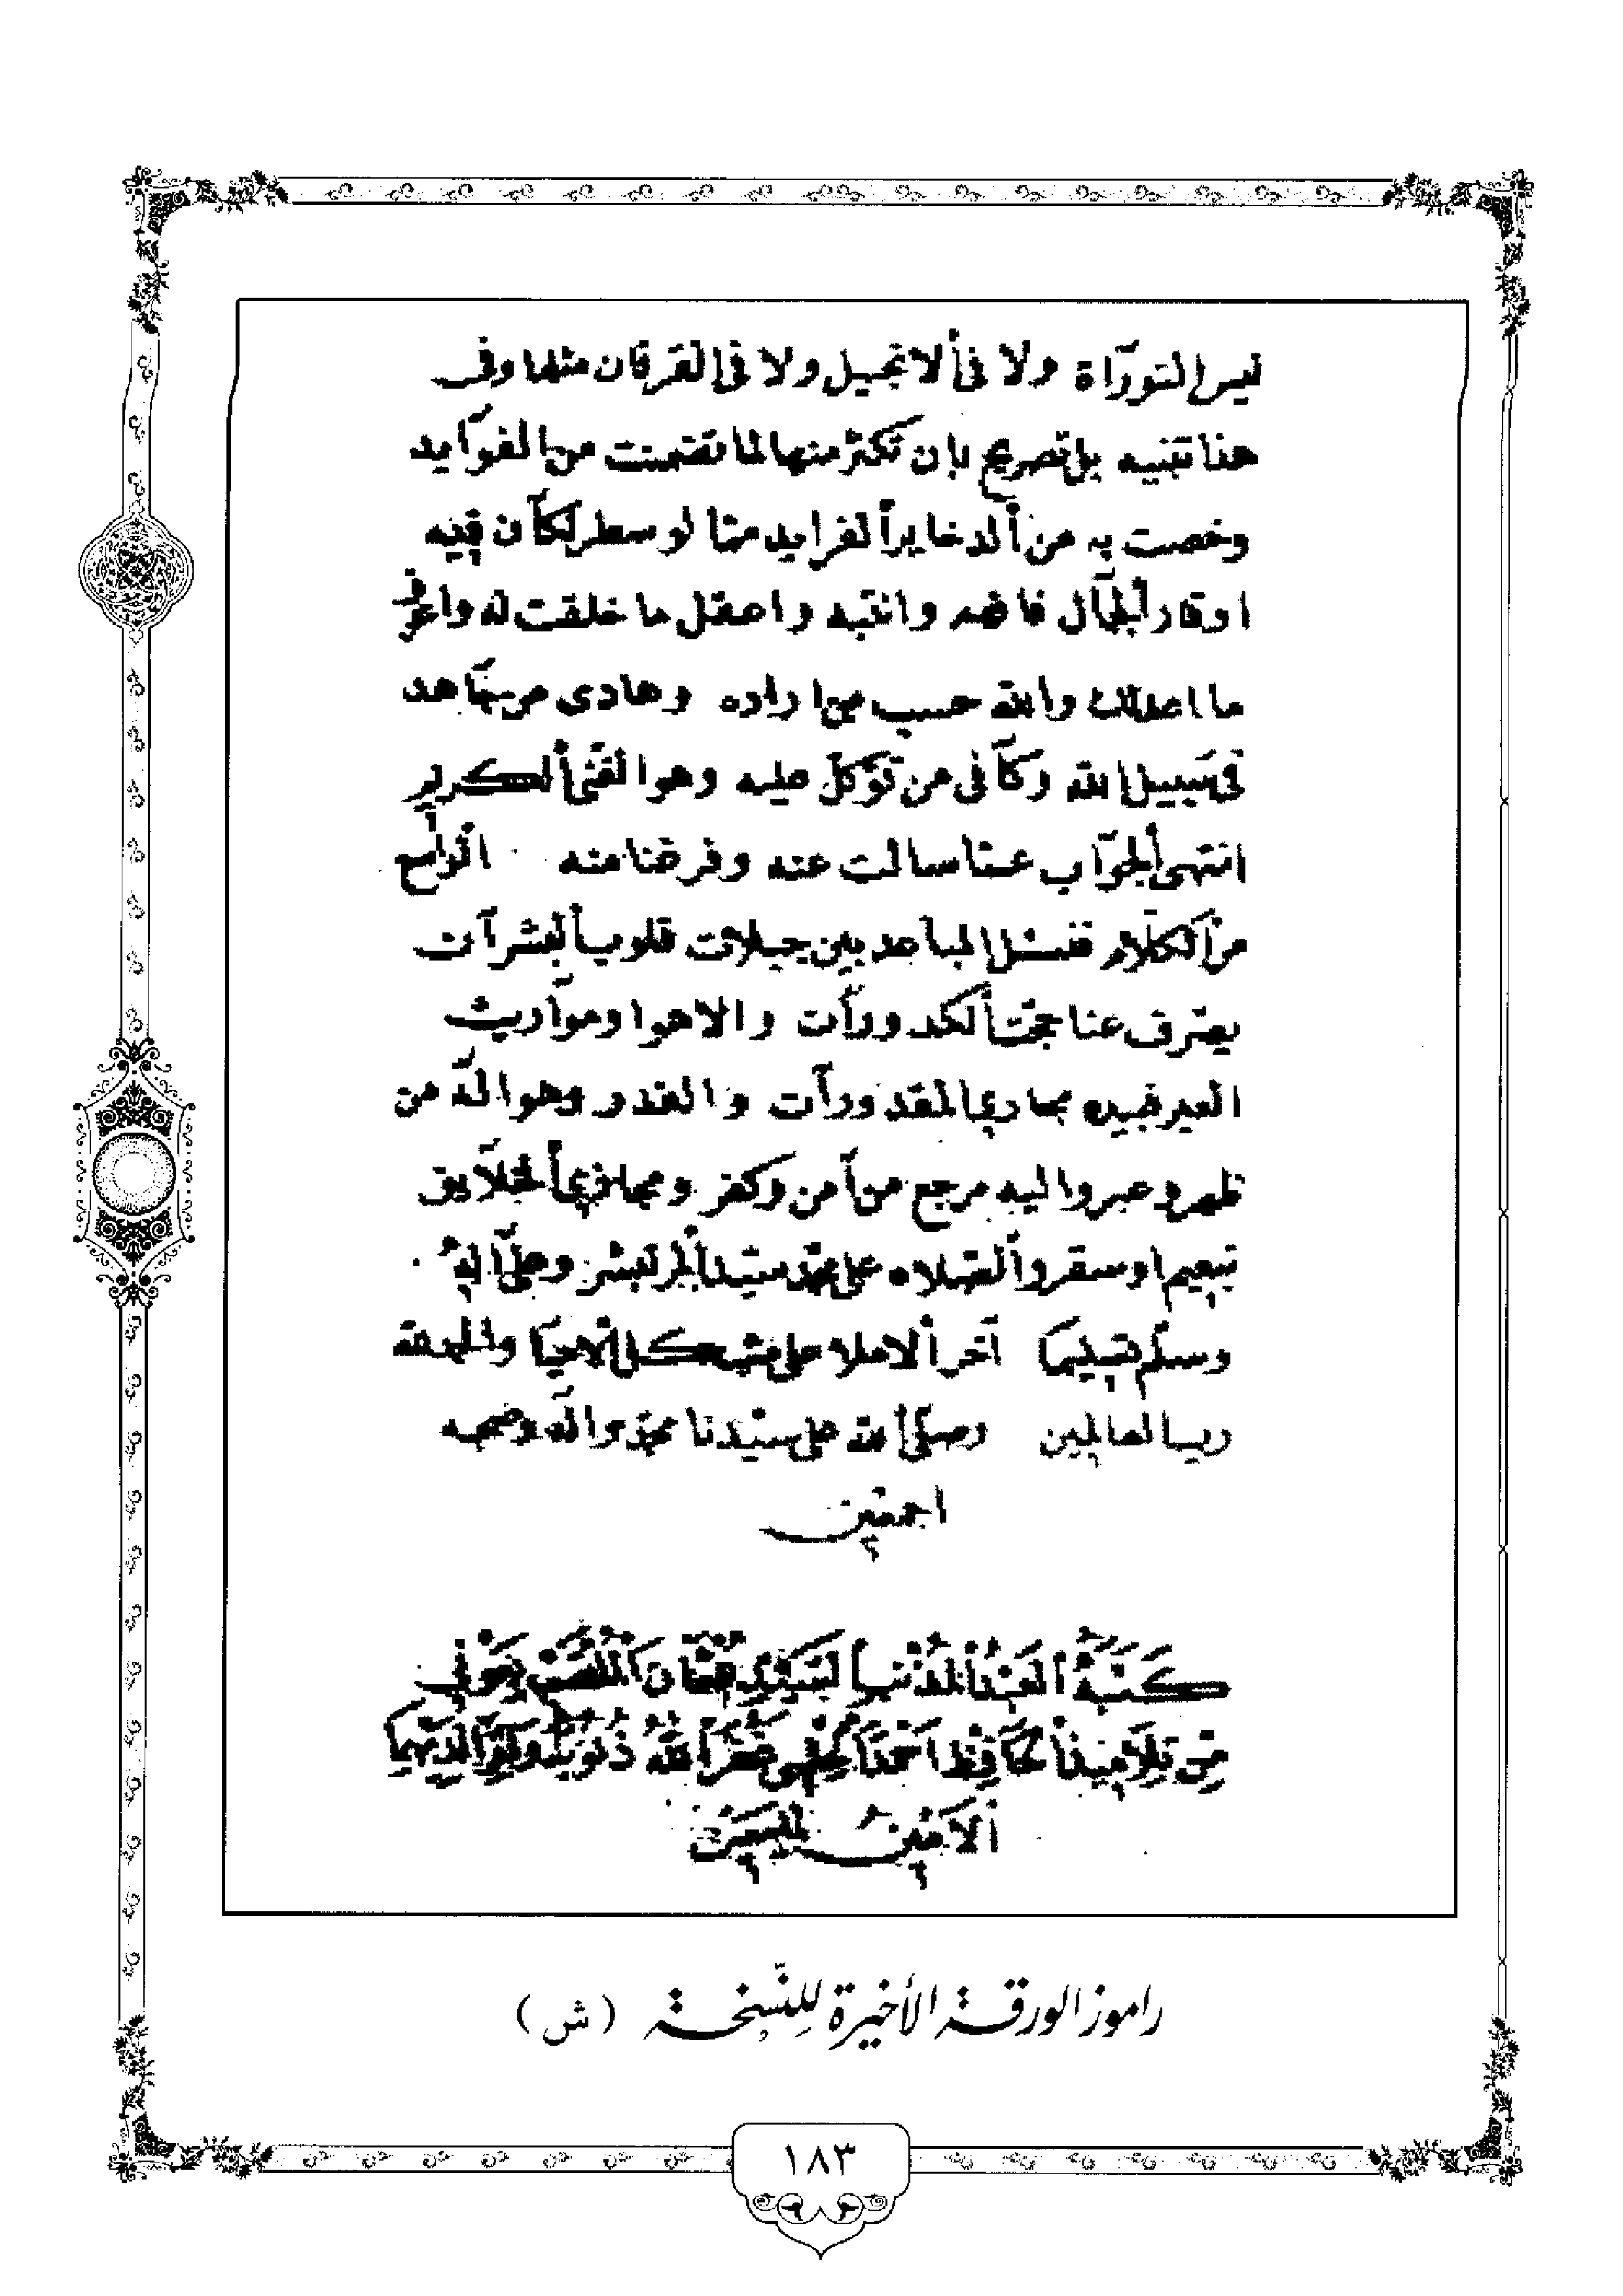 ليس التوراة ولا فى الانجيل ولا فى الفرقان مثلها وفى
هذا تنبيه بل تصريح بان تكثر منها لما تضمنت من الفوايد
وخصت به من الدخاير الفرايد مما لو سطر لكان فيه
اوقار الجمال فافهم وانتبه واعقل ما خلقت له واعرف
ما اعد لك والله حسب من اراده وهادى من جاهد
فى سبيل الله وكافى من توكل عليه وهو الغنى الكريم
انتهى الجواب عما سالت عنه وفرغنا منه الواسع
من الكلام فنسئل المباعد بين جبلات قلوب البشر ان
يصرف عنا حجب الكدورات والاهوا ومواريث
العير بمجارى المقدورات والغدر وهو اله من
ظهر وعبر واليه مرجع من آمن وكفر ومجازى الخلايق
بنعيم او سقر والصلاه على محمد سيد البشر وعلى اله
وسلم تسليما آخر الاملا على مشكل الاحيا والحمد لله
رب العالمين وصلى الله على سيدنا محمد واله وصحبه
اجمعين
كتبه العبد المذنب السيد عثمان
من تلاميذ الحافظ احمد غفر الله ذنوبهما ولوالديهما
الامين المعين
راموز الورقة الأخيرة للنسخة (ش)
١٨٣